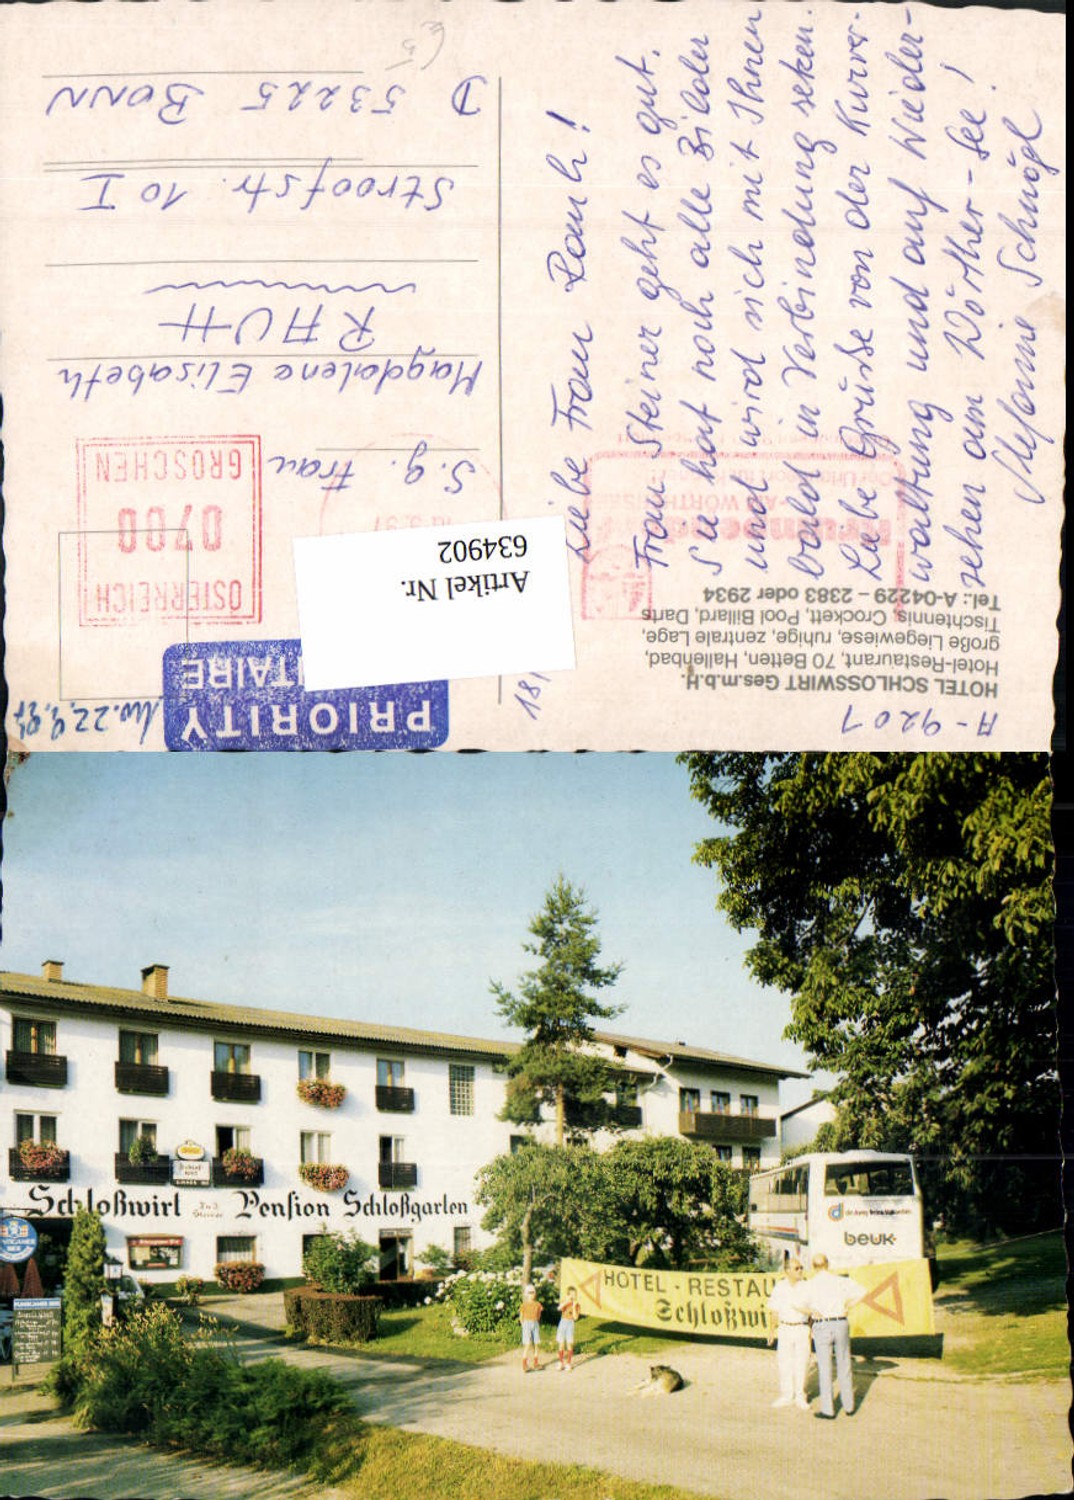 A-9201
HOTEL SCHLOSSWIRT Ges.m.b.H.
Hotel-Restaurant, 70 Betten, Hallenbad,
große Liegewiese, ruhige, zentrale Lage,
Tischtennis, Crockett, Pool Billard, Darts
Tel.: A-04229 – 2383 oder 2934
PRIORITY
ITAIRE
Artikel Nr.
634902
ÖSTERREICH
0700
GROSCHEN
AM WÖRTHERSEE
Liebe Frau Rauh!
Frau Steiner geht es gut.
Sie hat noch alle Bilder
und wird sich mit Ihnen
bald in Verbindung setzen.
Liebe Grüße von der Kurver-
waltung und auf Wieder-
sehen am Wörther-See!
Stefanie Schnögl
S.g. Frau
Magdalena Elisabeth
RAUH
Stroofstr. 10 I
D 53225 BONN
Schloßwirt Pension Schloßgarten
beuk
HOTEL - RESTAU
Schloßwi